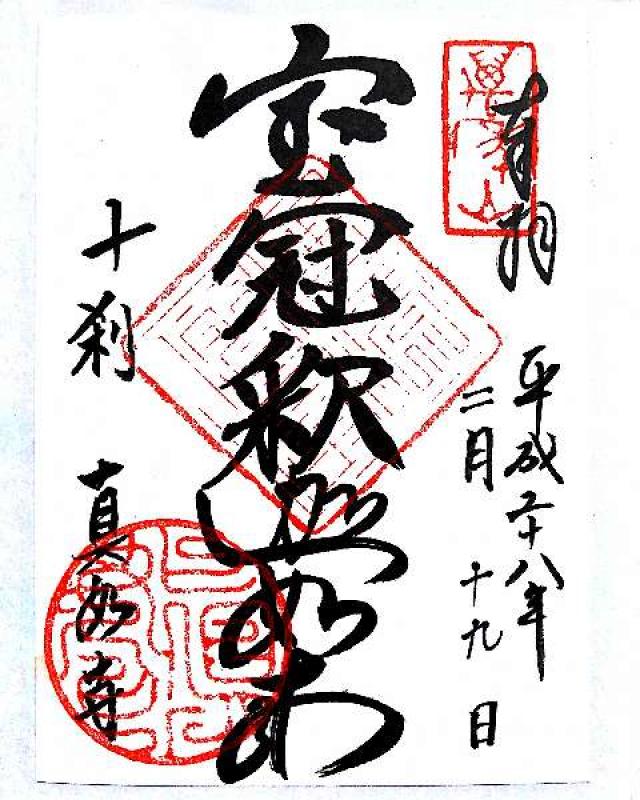 奉拝
平成二十八年
二月
十九日
宝冠釈迦如来
十刹
真如寺